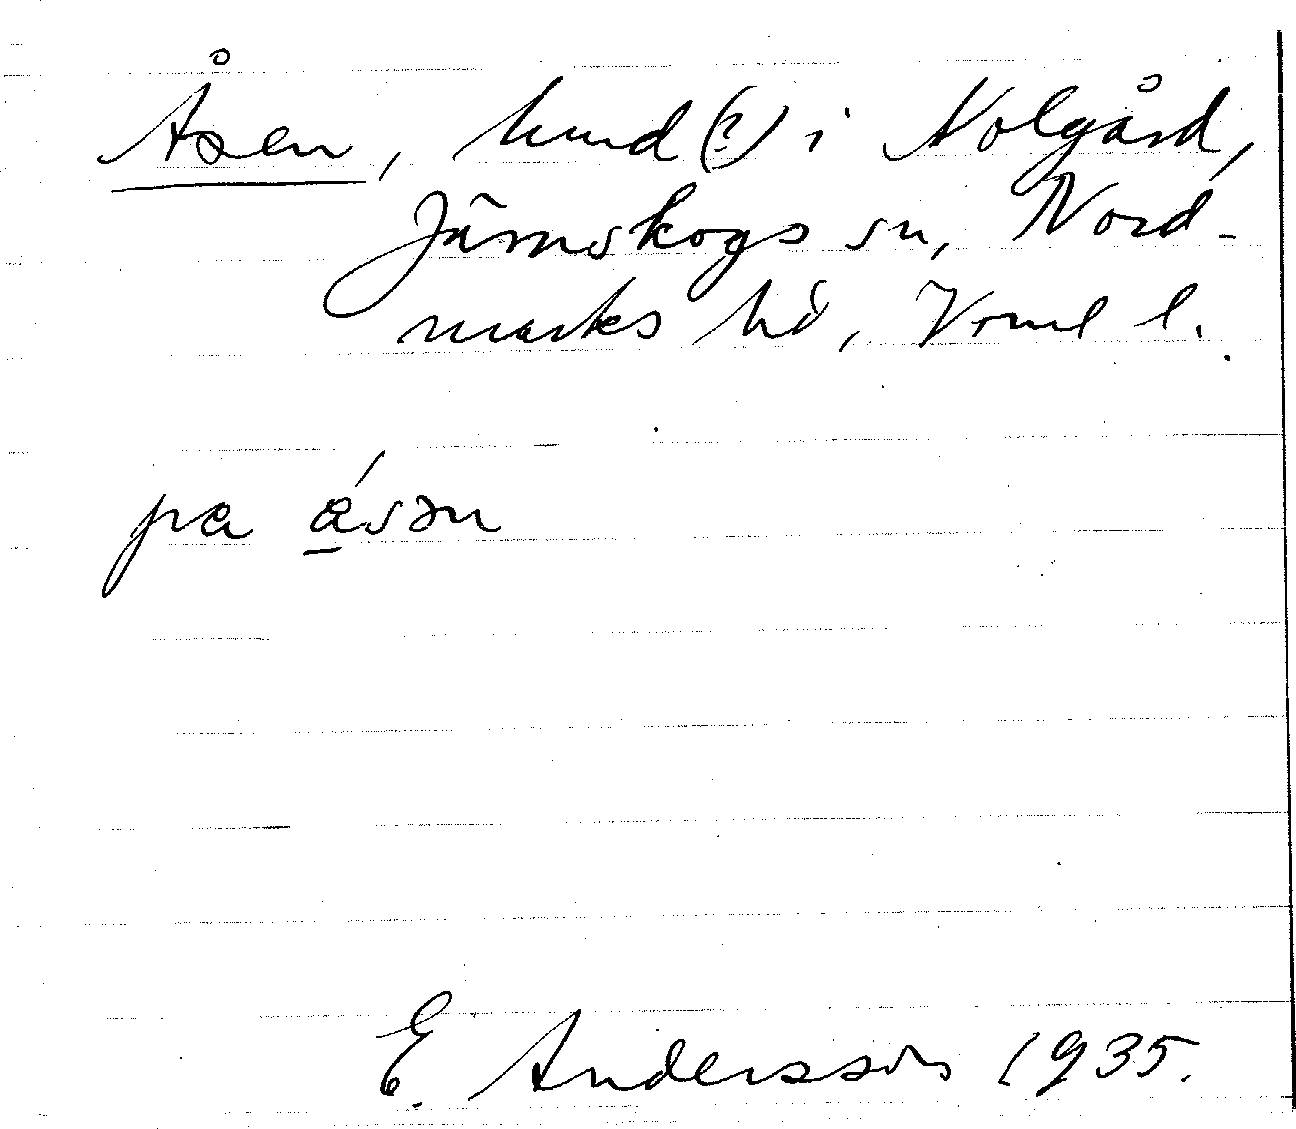 Åsen, hmd (?) i Nolgård,
Järnskogs sn, Nord-
marks hd, Vrml l.
pa ásən
E. Andersson 1935.